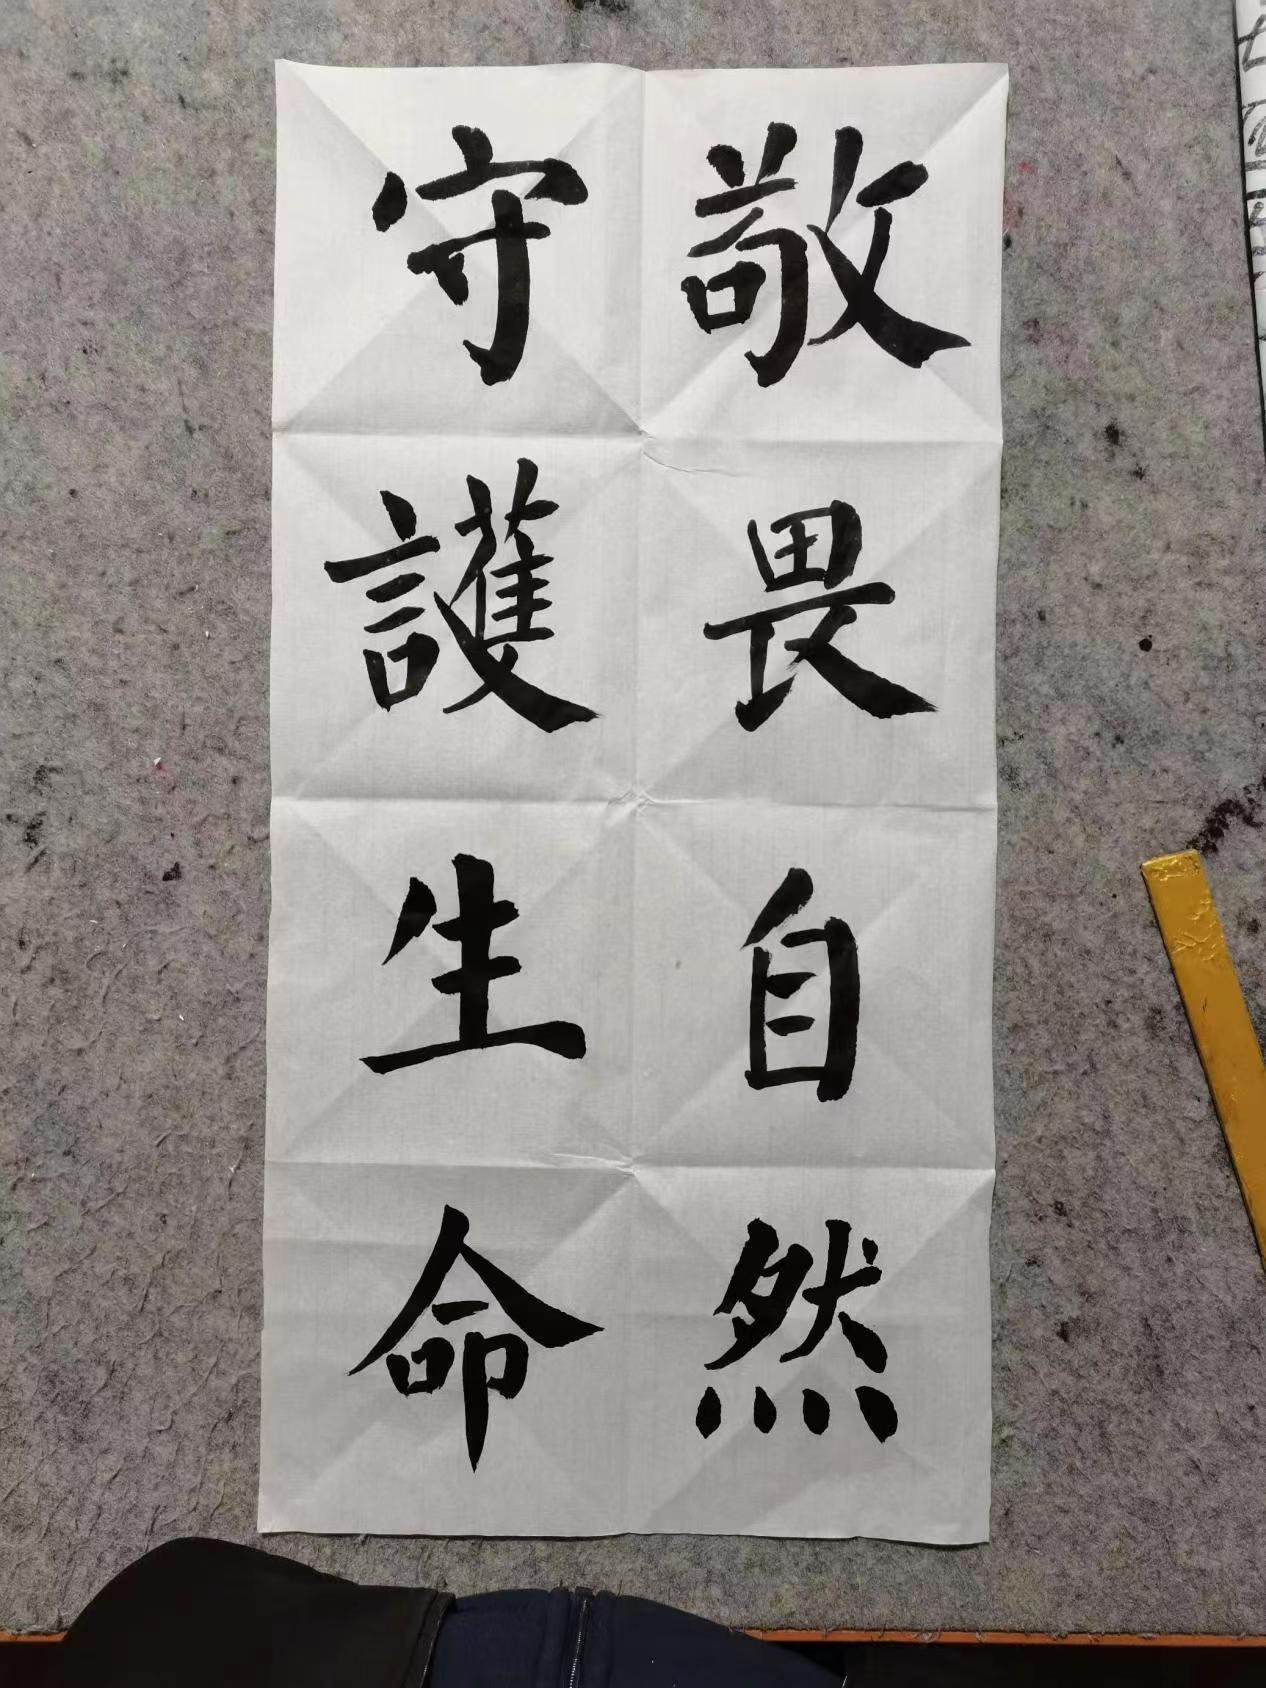 敬畏自然
守護生命